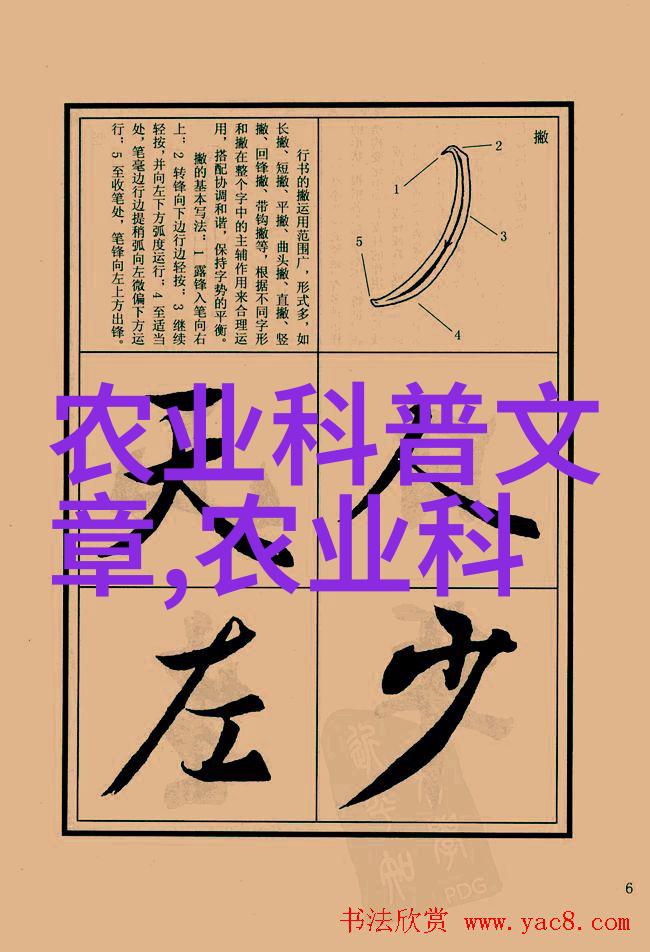 撇
1
2
3
4
5
行书的撇运用范围广，形式多，如
长撇、短撇、平撇、曲头撇、直撇、竖
撇、回锋撇、带钩撇等，根据不同字形
和撇在整个字中的主辅作用来合理运
用，搭配协调和谐，保持字势的平衡。
撇的基本写法：1 露锋入笔向右
上；2 转锋向下边行边轻按；3 继续
轻按，并向左下方弧度运行；4 至适当
处，笔毫边行边提稍弧向左微偏下方运
行；5 至收笔处，笔锋向左上方出锋。
农业科普文
章,农业科
人
天
少
左
PDG
6
书法欣赏 www.yac8.com